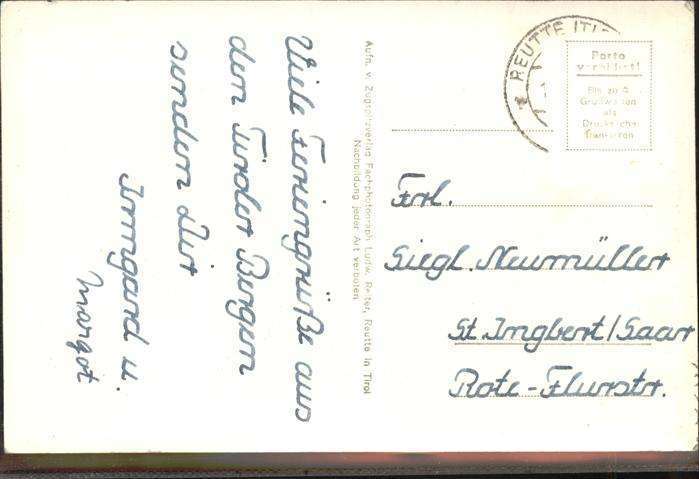 Viele Feriengrüße aus
den Tiroler Bergen
senden Dir
Irmgard u.
Margot
Aufn. v. Zugspitzverlag Fachphotograph Ludw. Reiter, Reutte in Tirol
Nachbildung jeder Art verboten
REUTTE (TI
Porto
verbilligt!
Bis zu 4
Grußworten
als
Drucksache
frankieren
Frl.
Siegl. Neumüller
St. Ingbert/Saar
Rote-Flurstr.